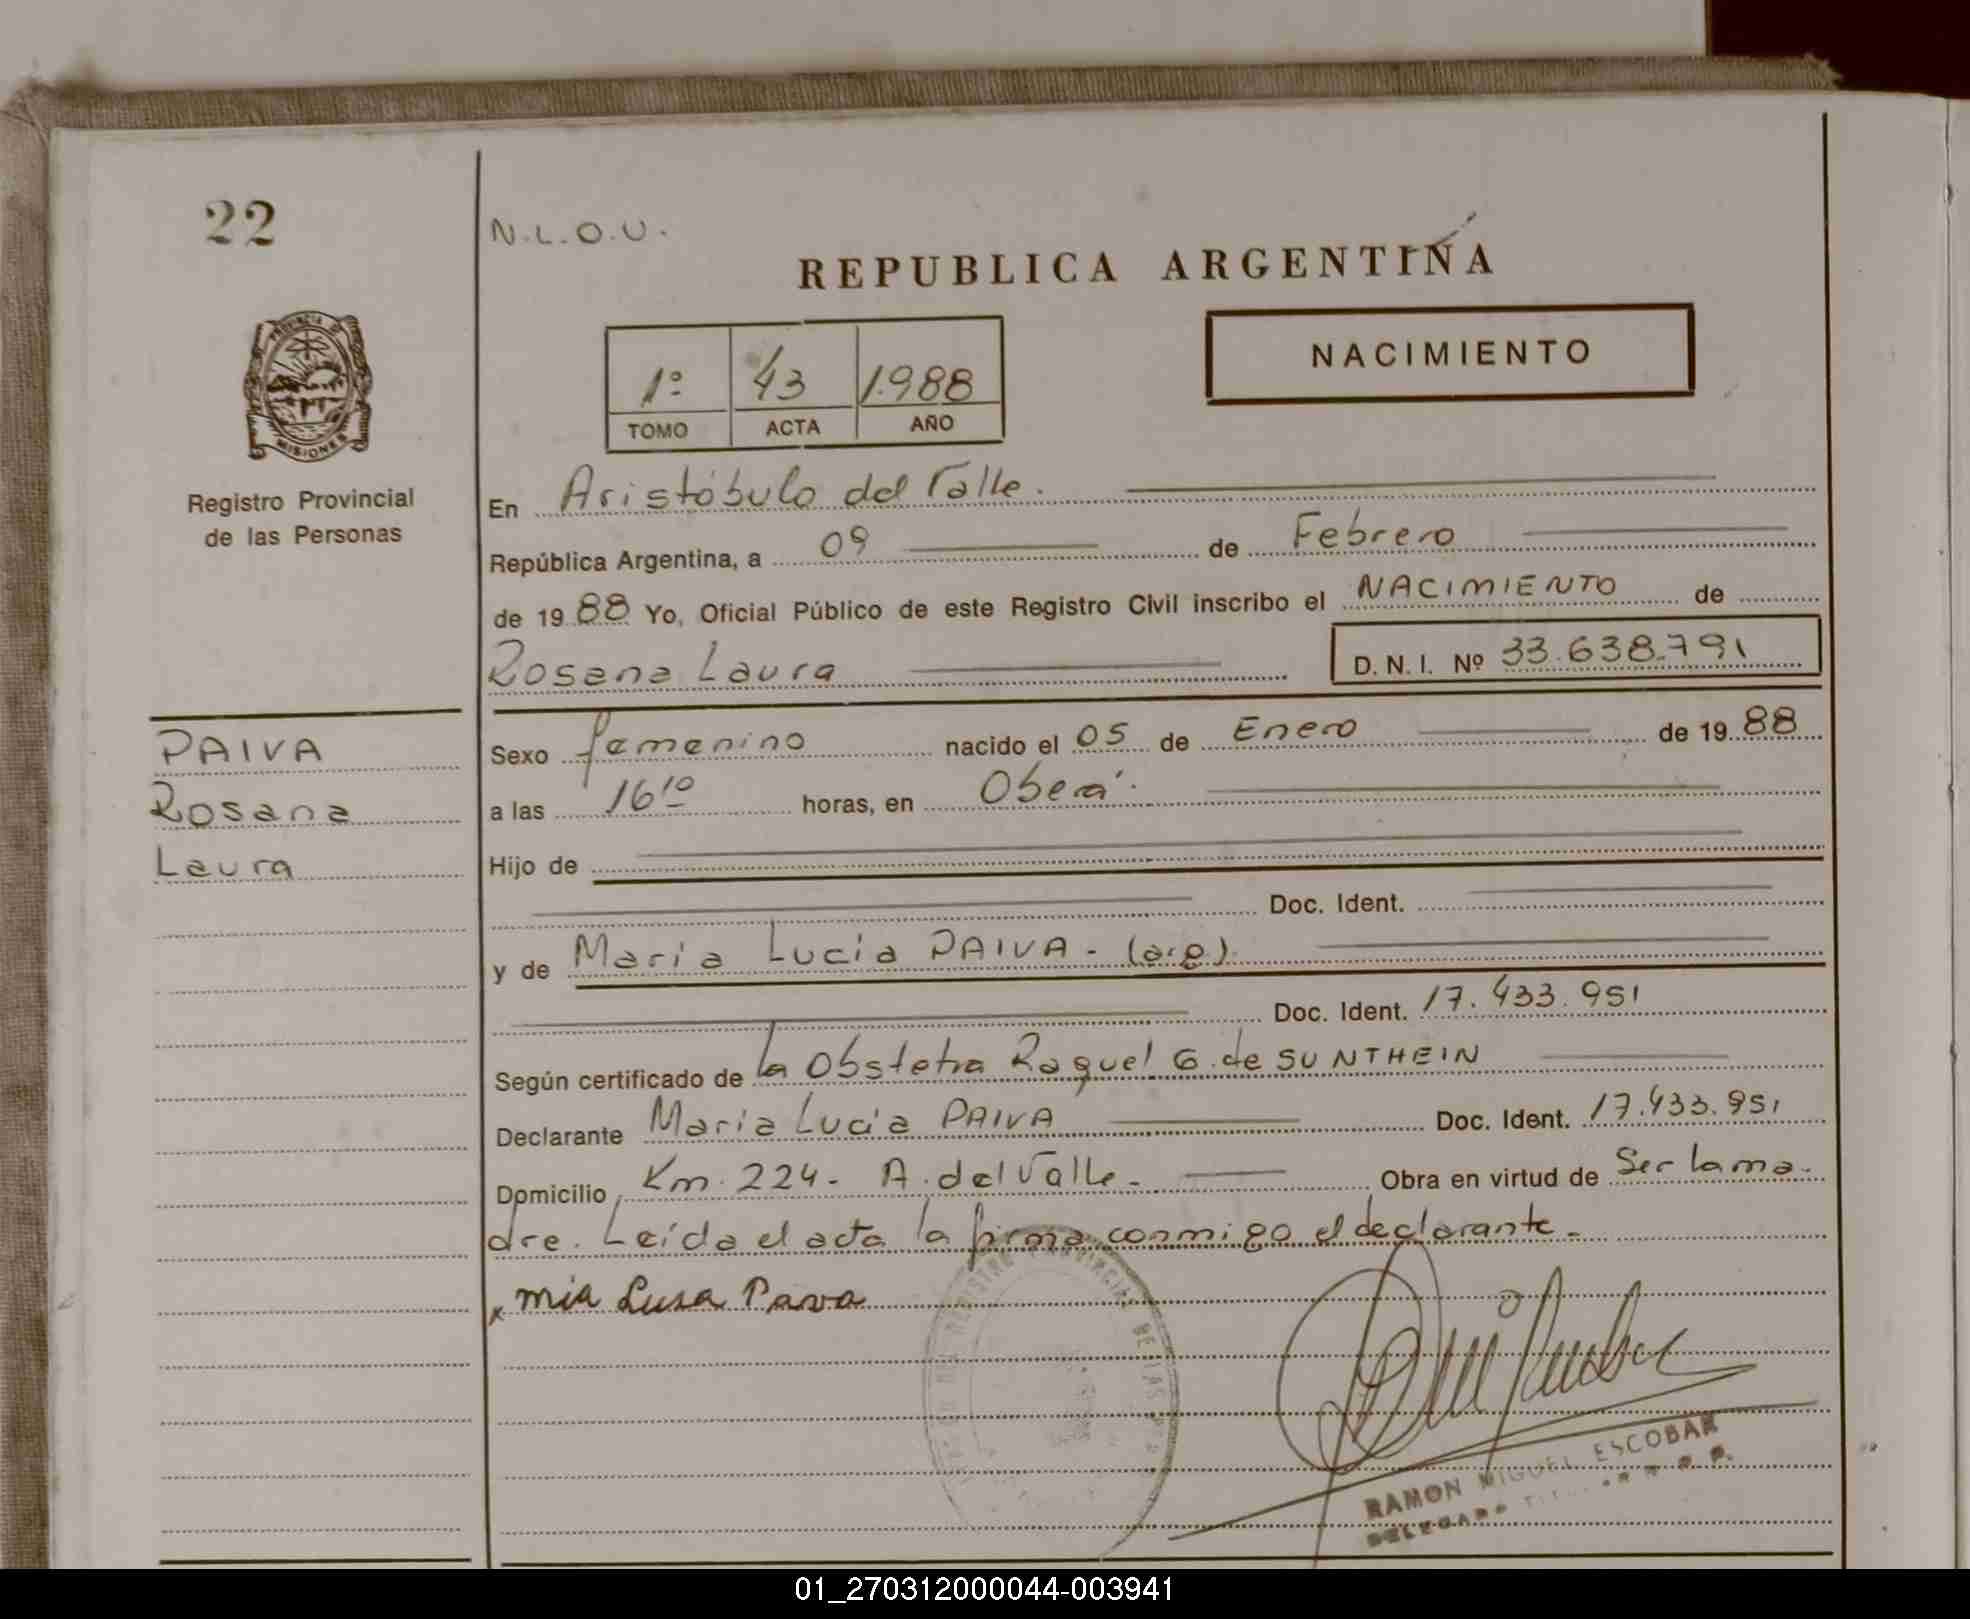 22
N.L.O.U.
REPUBLICA ARGENTINA
PROVINCIA D
MISIONES
1º 43 1.988
TOMO ACTA AÑO
NACIMIENTO
Registro Provincial
de las Personas
En Aristóbulo del Valle.
República Argentina, a 09 de Febrero
de 19 88 Yo, Oficial Público de este Registro Civil inscribo el NACIMIENTO de
Rosana Laura D. N. I. Nº 33.638.791
PAIVA
Rosana
Laura
Sexo femenino nacido el 05 de Enero de 19 88
a las 16 10 horas, en Oberá.
Hijo de
Doc. Ident.
y de María Lucía PAIVA - (arg).
Doc. Ident. 17.433.951
Según certificado de la Obstetra Raquel G. de SUNTHEIN
Declarante María Lucía PAIVA Doc. Ident. 17.433.951
Domicilio Km. 224 - A. del Valle - Obra en virtud de Ser la ma-
dre. Leída el acta la firma conmigo el declarante.-
x mia Lusa Pava
REGISTRO PROVINCIAL DE LAS
RAMON MIGUEL ESCOBAR
DELEGADO
01_270312000044-003941